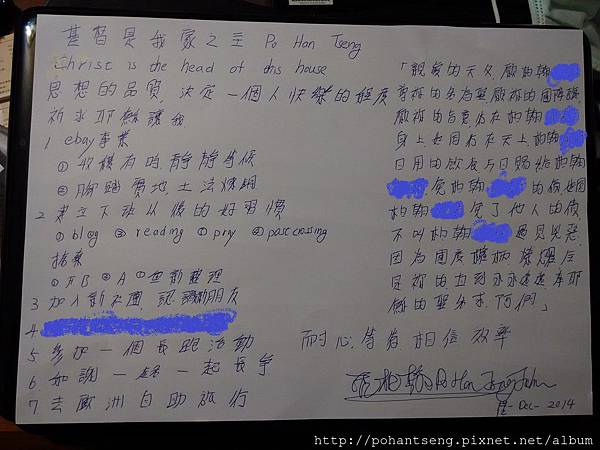 基督是我家之主 Po Han Tseng
Christ is the head of this house
思想的品質,決定一個人快樂的程度
祈求耶穌讓我
1 ebay事業
① 收穫有時,靜靜等候
② 腳踏實地土法煉鋼
2 建立下班以後的好習慣
① blog ② reading ③ pray ④ postcrossing
① FB ② A ③
3 加入新社團,認識新朋友
4
5 參加一個長跑活動
6 如謝一起長穿
7 去歐洲自助旅行
「親愛的天父,願柏翰
尊祢的名為聖,願祢的國降臨
願祢的旨意行在柏翰
身上如同行在天上,柏翰
日用的飲食今日賜給柏翰
免柏翰 的債,如個
柏翰 免了他人的債
不叫柏翰 遇見兇惡
因為國度權柄榮耀
是祢的直到永永遠遠奉耶
穌的聖名求,阿們」
耐心,等著,相信,效率
Po Han Tseng John
Dec - 2014
http://pohantseng.pixnet.net/album